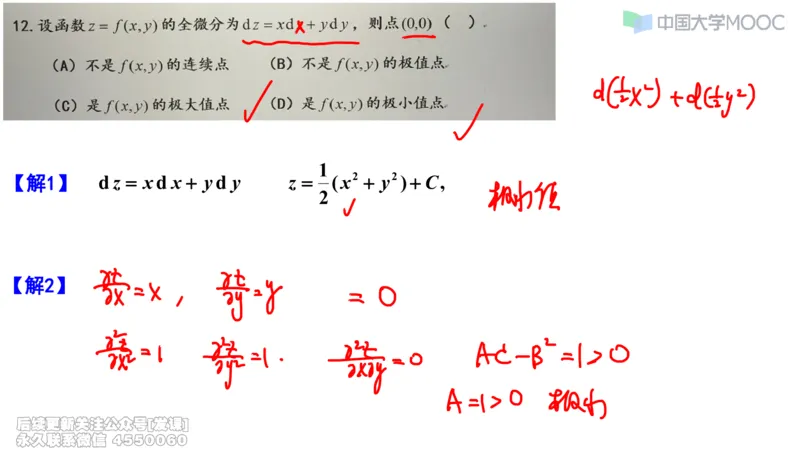 中国大学MOOC
12. 设函数 z = f(x,y) 的全微分为 dz = xdx + ydy，则点(0,0)（ ）.
(A) 不是 f(x,y) 的连续点 (B) 不是 f(x,y) 的极值点
(C) 是 f(x,y) 的极大值点 (D) 是 f(x,y) 的极小值点
d(½x²) + d(½y²)
【解1】 dz = xdx + ydy z = ½(x² + y²) + C,
极小值
【解2】 ∂z/∂x = x , ∂z/∂y = y = 0
∂²z/∂x² = 1 ∂²z/∂y² = 1 . ∂²z/∂x∂y = 0 AC − B² = 1 > 0
A = 1 > 0 极小
后续更新关注公众号[发课]
永久联系微信 4550060